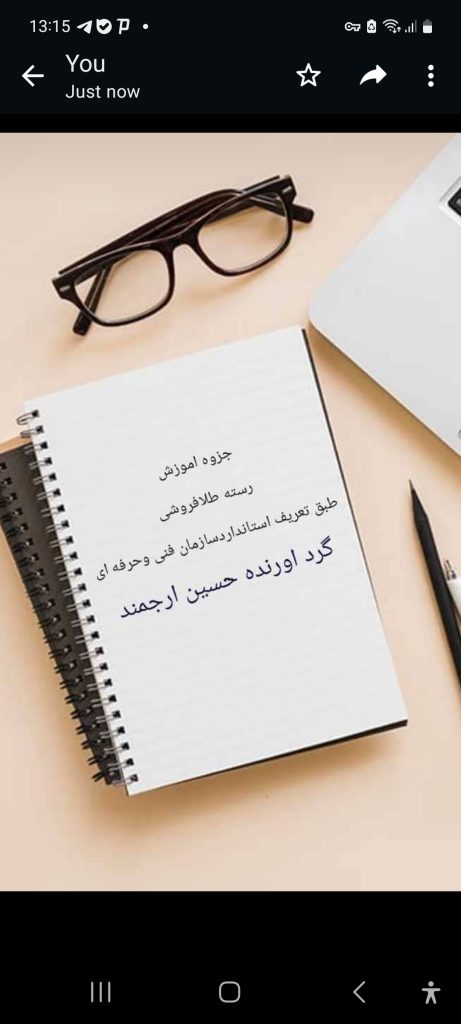 13:15
You
Just now
جزوه اموزش
رسته طلافروشی
طبق تعریف استانداردسازمان فنی وحرفه ای
گرد اورنده حسین ارجمند